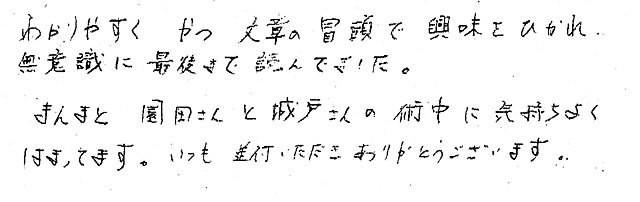 わかりやすく かつ 文章の冒頭で興味をひかれ、
無意識に最後まで読んでさいた。
まんまと 園田さんと城戸さんの術中に気持ちよく
はまってます。いつも 送付いただきありがとうございます。